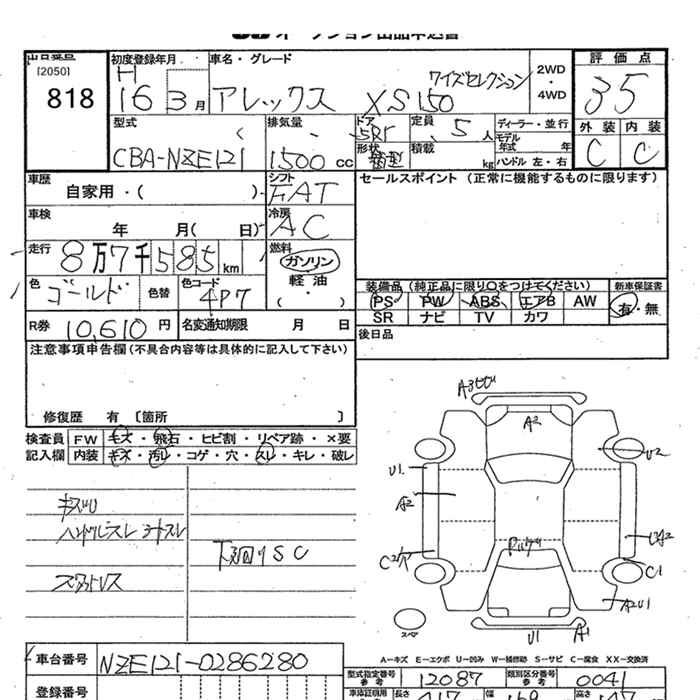 オークション出品申込書
出品番号
[2050]
818
初度登録年月
H
16 3月
車名・グレード
ワイズセレクション
アレックス XS150
2WD
・
4WD
評価点
3.5
型式
CBA-NZE121
排気量
1500 cc
ドア
5Dr
形状
箱型
定員
5人
積載
kg
ディーラー・並行
モデル年式 年
ハンドル 左・右
外装 内装
C C
車歴
自家用・( )
シフト
FAT
セールスポイント (正常に機能するものに限ります)
車検
年 月( 日)
冷房
AC
走行
8万7千585km
燃料
ガソリン
軽油
( ・ )
色
ゴールド
色替
色コード
4P7
装備品 (純正品に限り○をつけてください)
新車保証書
PS PW ABS エアB AW
有・無
SR ナビ TV カワ
R券 10,610円
名変通知期限 月 日
後日品
注意事項申告欄(不具合内容等は具体的に記入して下さい)
修復歴 有 〔箇所 〕
検査員
記入欄
FW キズ・飛石・ヒビ割・リペア跡・×要
内装 キズ・汚レ・コゲ・穴・スレ・キレ・破レ
キズUU
ハンドルスレ シートスレ
下廻りSC
スタットレス
A3
A2
U1
U2
A2
C2穴
C1
A2U1
U1
A1
スペア
A…キズ E…エクボ U…凹み W…補修跡 S…サビ C…腐食 XX…交換済
車台番号
NZE121-0286280
登録番号
型式指定番号
参考
12087
類別区分番号
参考
0041
長さ
417
幅
169
高さ
147